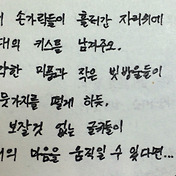 손가락들이 흘러간 자리위에
대의 키스를 남겨주오.
미풍과 작은 빗방울들이
뭇가지를 떨게 하듯,
보잘것 없는 글귀들이
마음을 움직일 수 있다면...